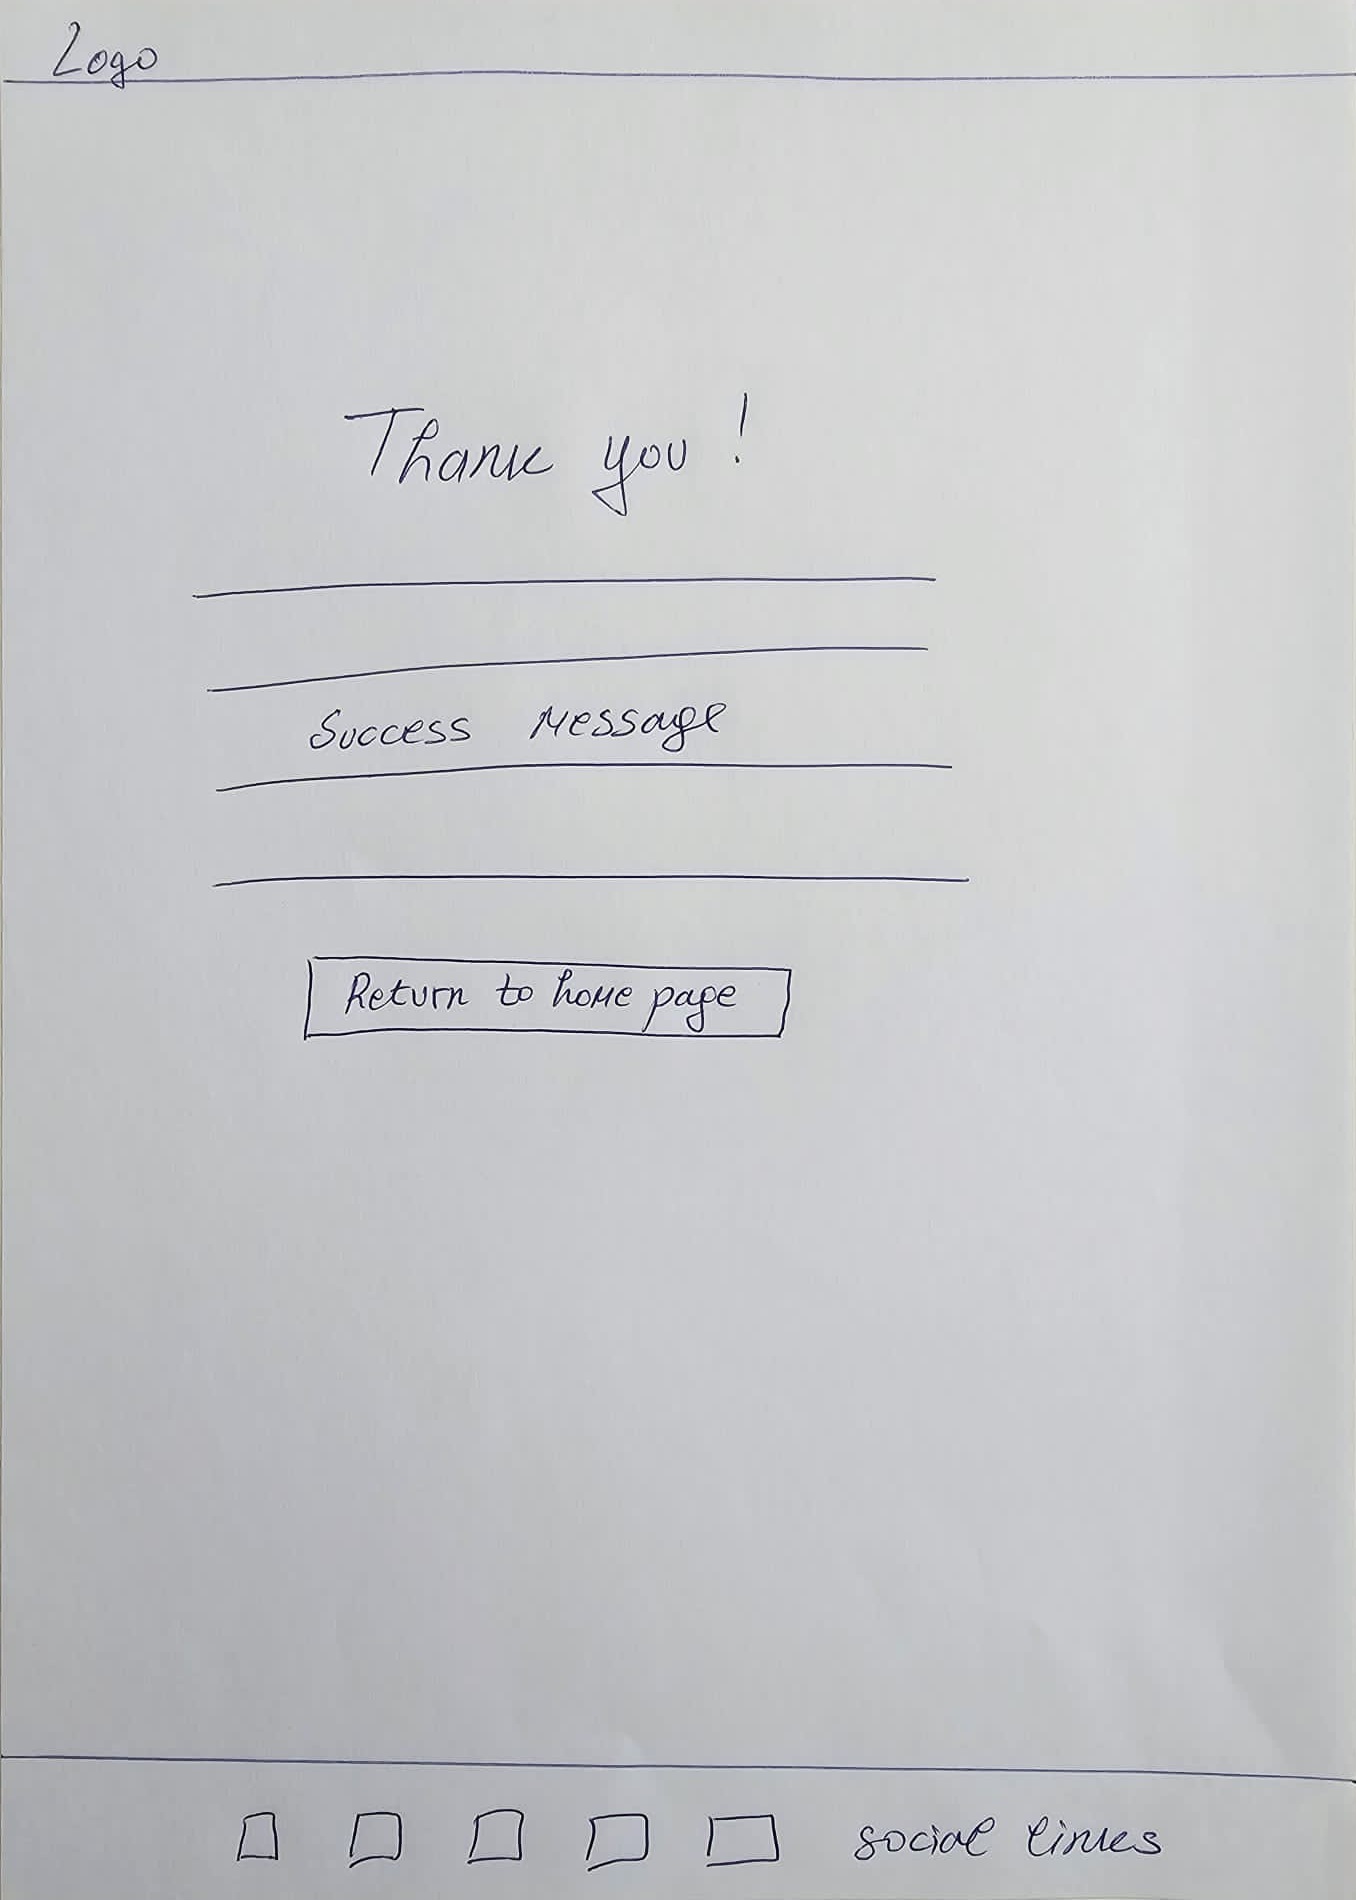 Logo
Thank you!
Success Message
Return to home page
social links